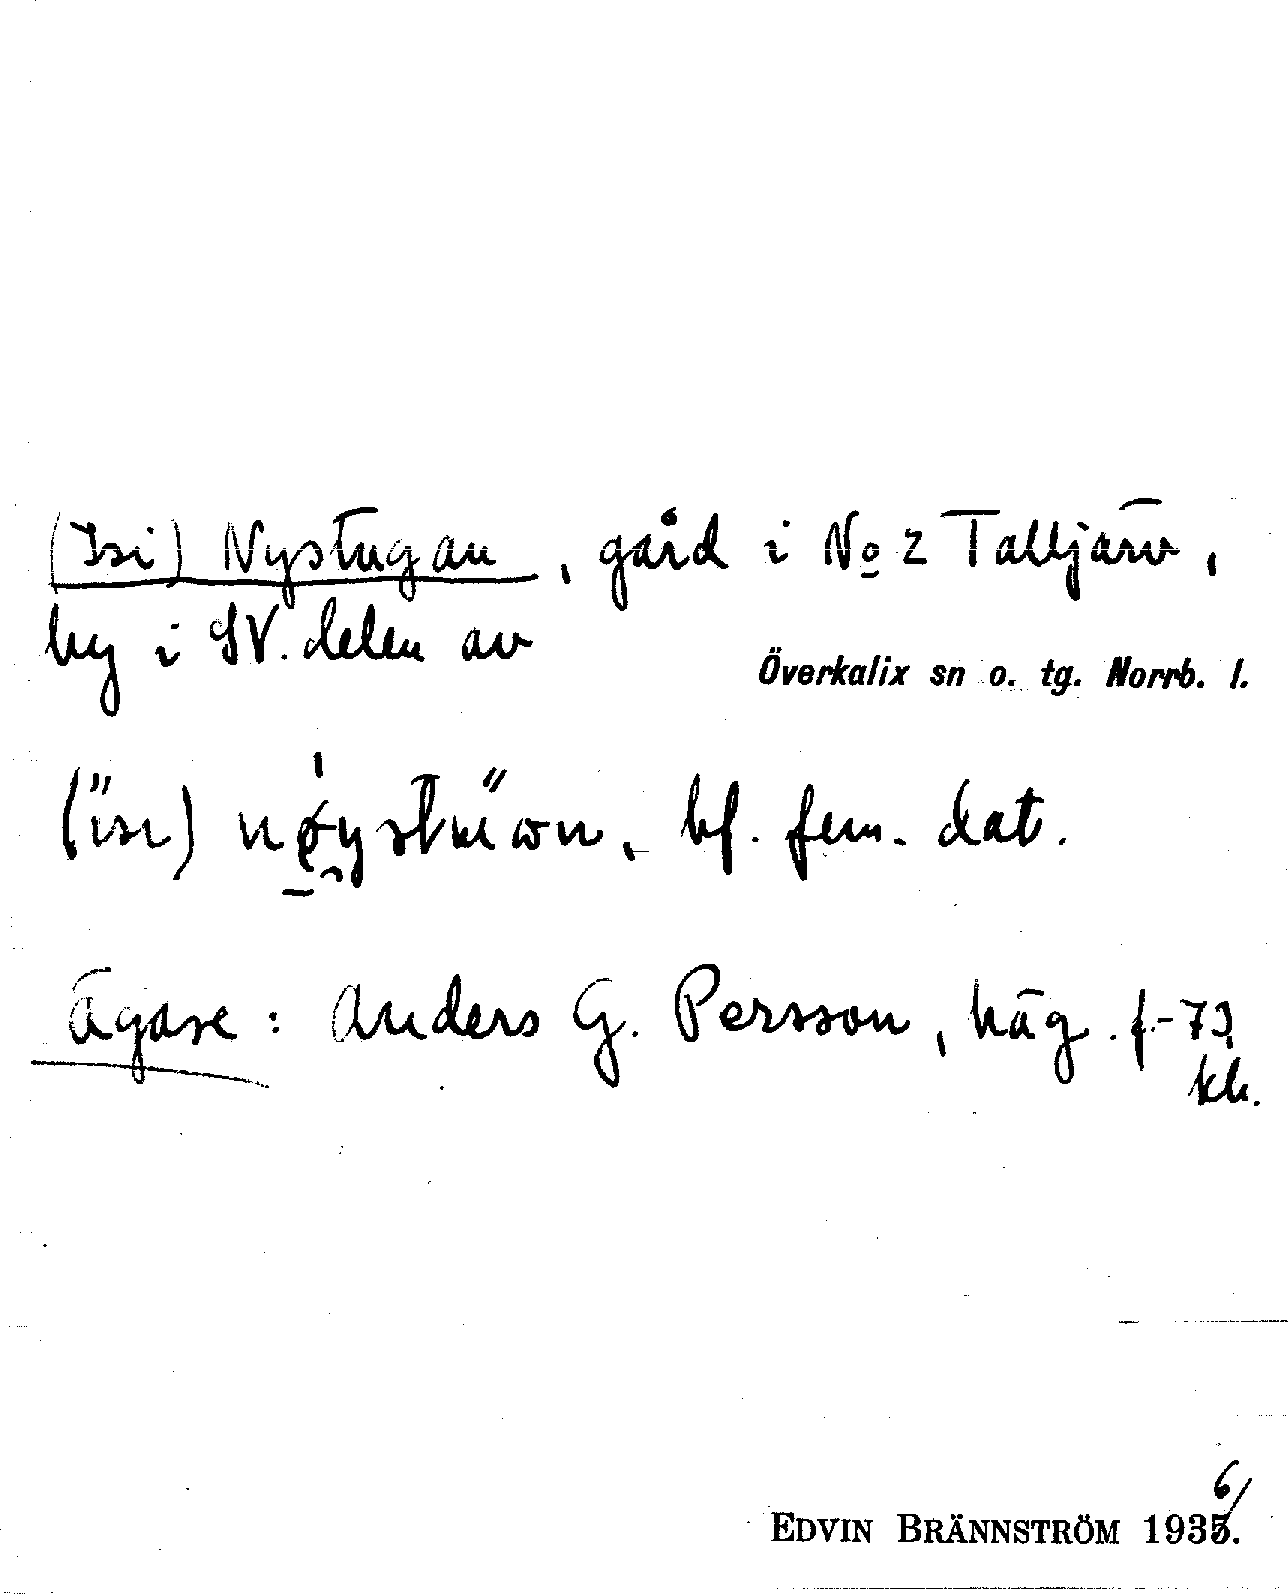 (Isi) Nystugan, gård i No 2 Talljärv,
by i SV. delen av
Överkalix sn o. tg. Norrb. l.
bf. fem. dat.
Ägare: Anders G. Persson, häg. f.-73,
EDVIN BRÄNNSTRÖM 1935.
6/